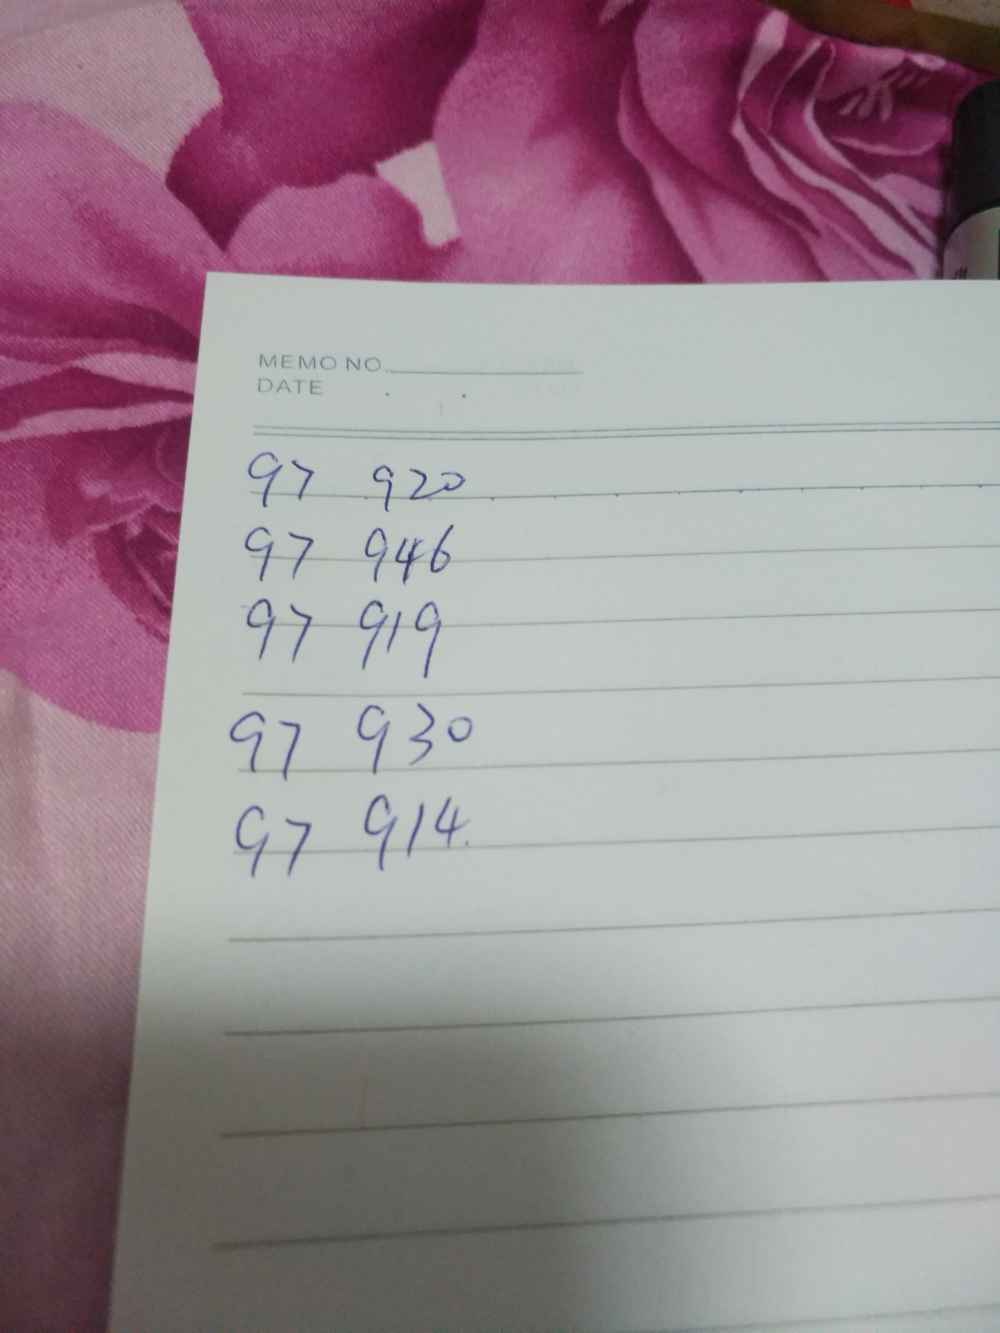 MEMO NO.
DATE . .
97 920
97 946
97 919
97 930
97 914.